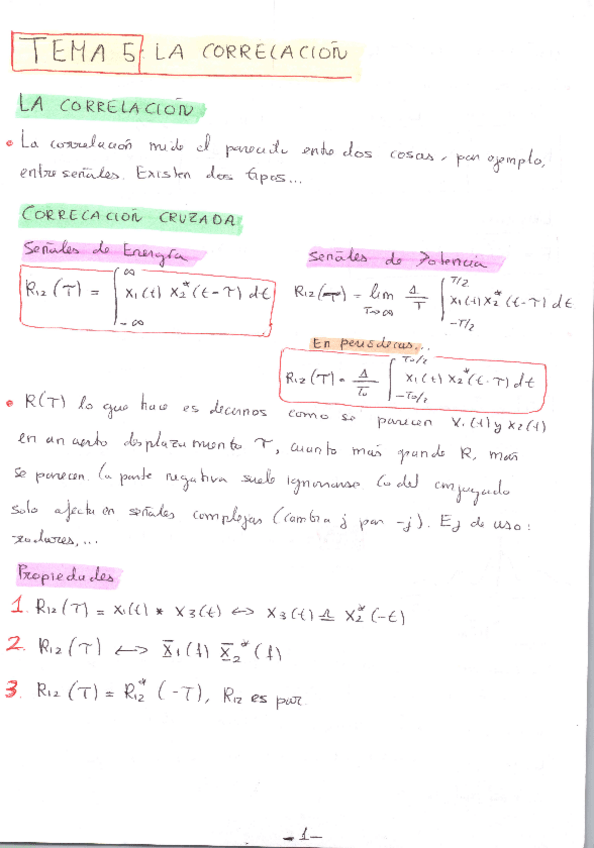 TEMA 5 LA CORRELACIÓN
LA CORRELACIÓN
• La correlación mide el parecido entre dos cosas, por ejemplo,
entre señales. Existen dos tipos...
CORRELACIÓN CRUZADA
Señales de Energía
R₁₂(τ) = ∫_{-∞}^{∞} x₁(t) x₂*(t-τ) dt
Señales de Potencia
R₁₂(τ) = lim_{T→∞} 1/T ∫_{-T/2}^{T/2} x₁(t) x₂*(t-τ) dt
En periódicas...
R₁₂(τ) = 1/T₀ ∫_{-T₀/2}^{T₀/2} x₁(t) x₂*(t-τ) dt
• R(τ) lo que hace es decirnos como se parecen x₁(t) y x₂(t)
en un cierto desplazamiento τ, cuanto más grande R, más
se parecen. La parte negativa suele ignorarse. Lo del conjugado
solo afecta en señales complejas (cambia j por -j). Ej de uso:
radares,...
Propiedades
1. R₁₂(τ) = x₁(t) * x₃(t) ↔ x₃(t) ≜ x₂*(-t)
2. R₁₂(τ) ↔ X₁(f) X₂*(f)
3. R₁₂(τ) = R₁₂*(-τ), R₁₂ es par
- 1 -